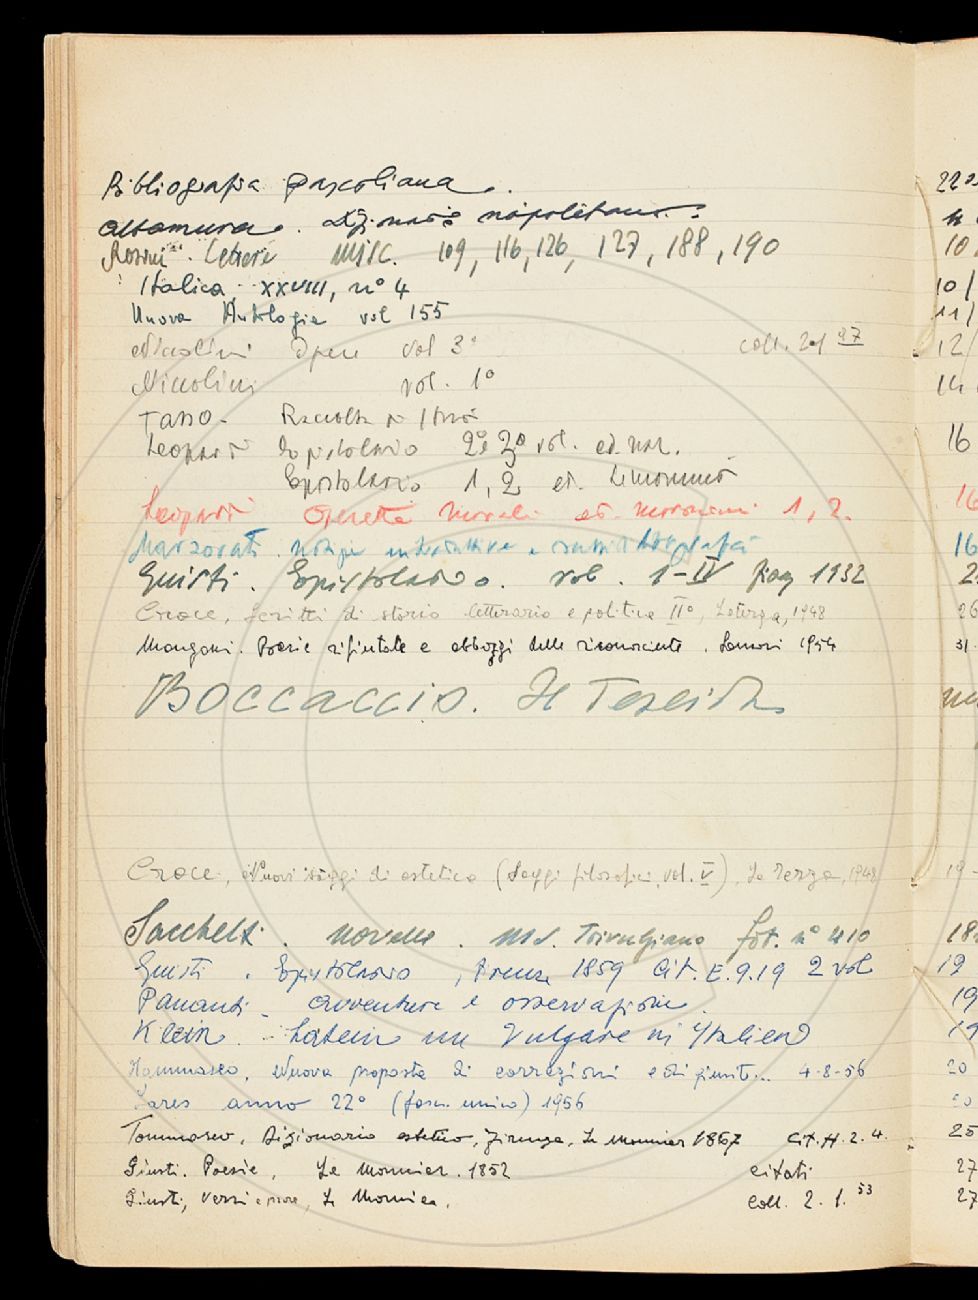 Bibliografia pascoliana.
Altamura. Dizionario napoletano.
Rosini. Lettere Misc. 109, 116, 126, 127, 188, 190
Italica, XXVIII, n° 4
Nuova Antologia vol 155
Niccolini Opere vol 3° coll. 97
Niccolini vol. 1°
Tasso. Raccolta di
Leopardi Epistolario 2° e 3° vol. ed.
Epistolario 1, 2 ed. Lemonnier
Leopardi Operette Morali ed. 1, 2.
Marzorati. Notizie introduttive e
Giusti. Epistolario. vol. 1-IV 1932
Croce, Scritti di storia letteraria e politica II°, Laterza, 1948
Manzoni. Poesie rifiutate e abbozzi delle riconosciute. Sansoni 1954
Boccaccio. Il Teseida
Croce, Nuovi saggi di estetica (Saggi filosofici, vol. V), La Terza, 1948
Sacchetti. Novelle. Ms. Trivulziano fot. n° 410
Giusti. Epistolario, Firenze 1859 Cit. E.9.19 2 vol
Pananti. Avventure e osservazioni.
Klein. Latein und Volgare in Italien
Tommaseo, Nuova proposta di correzioni e di giunte... 4-8-56
Lares anno 22° (fasc. unico) 1956
Tommaseo, Dizionario estetico, Firenze, Le Monnier 1867 Cit. H. 2. 4.
Giusti. Poesie, Le Monnier. 1852 citati
Giusti, Versi e prose, Le Monnier. Coll. 2. 1. 53
10
10/
11/
12/
14
16
16
16
26
31.
19
19
19
20
25
27
27